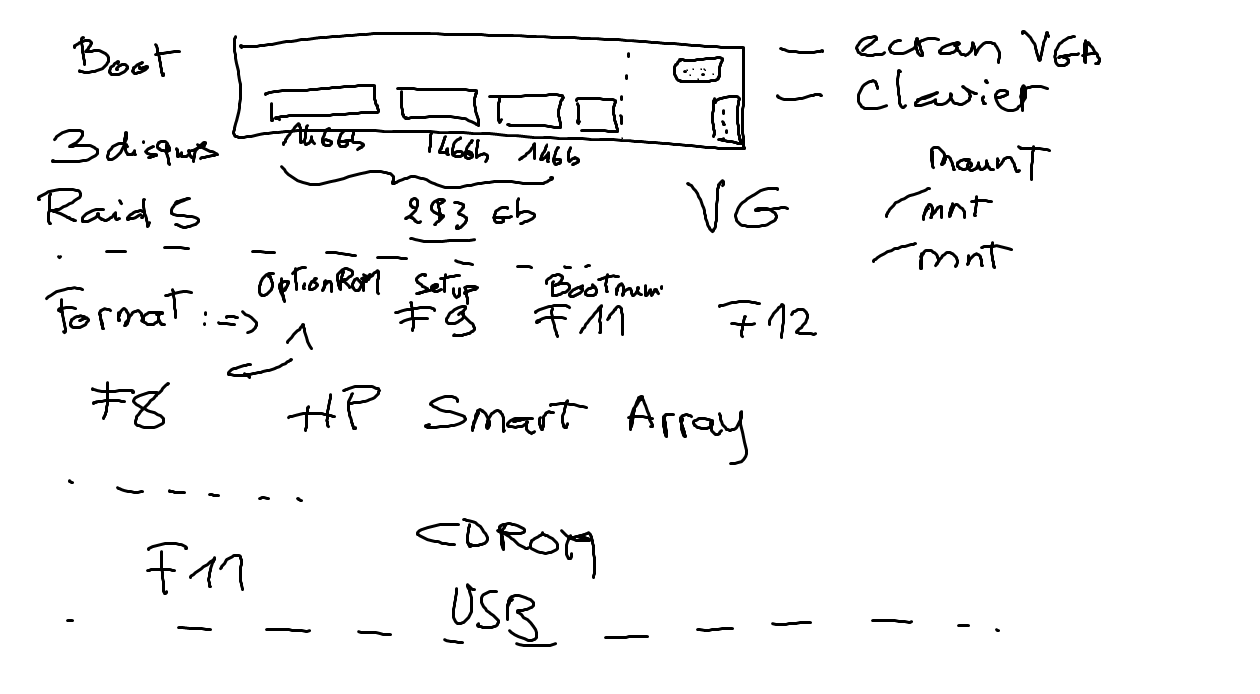 Boot
— ecran VGA
— Clavier
3 disques
146Gb 146Gb 146b
maunT
Raid 5
293 Gb
VG
/mnt
/mnt
OptionRom Setup Bootmenu
Format : => 1 F9 F11 F12
F8 HP Smart Array
F11 CDROM
USB